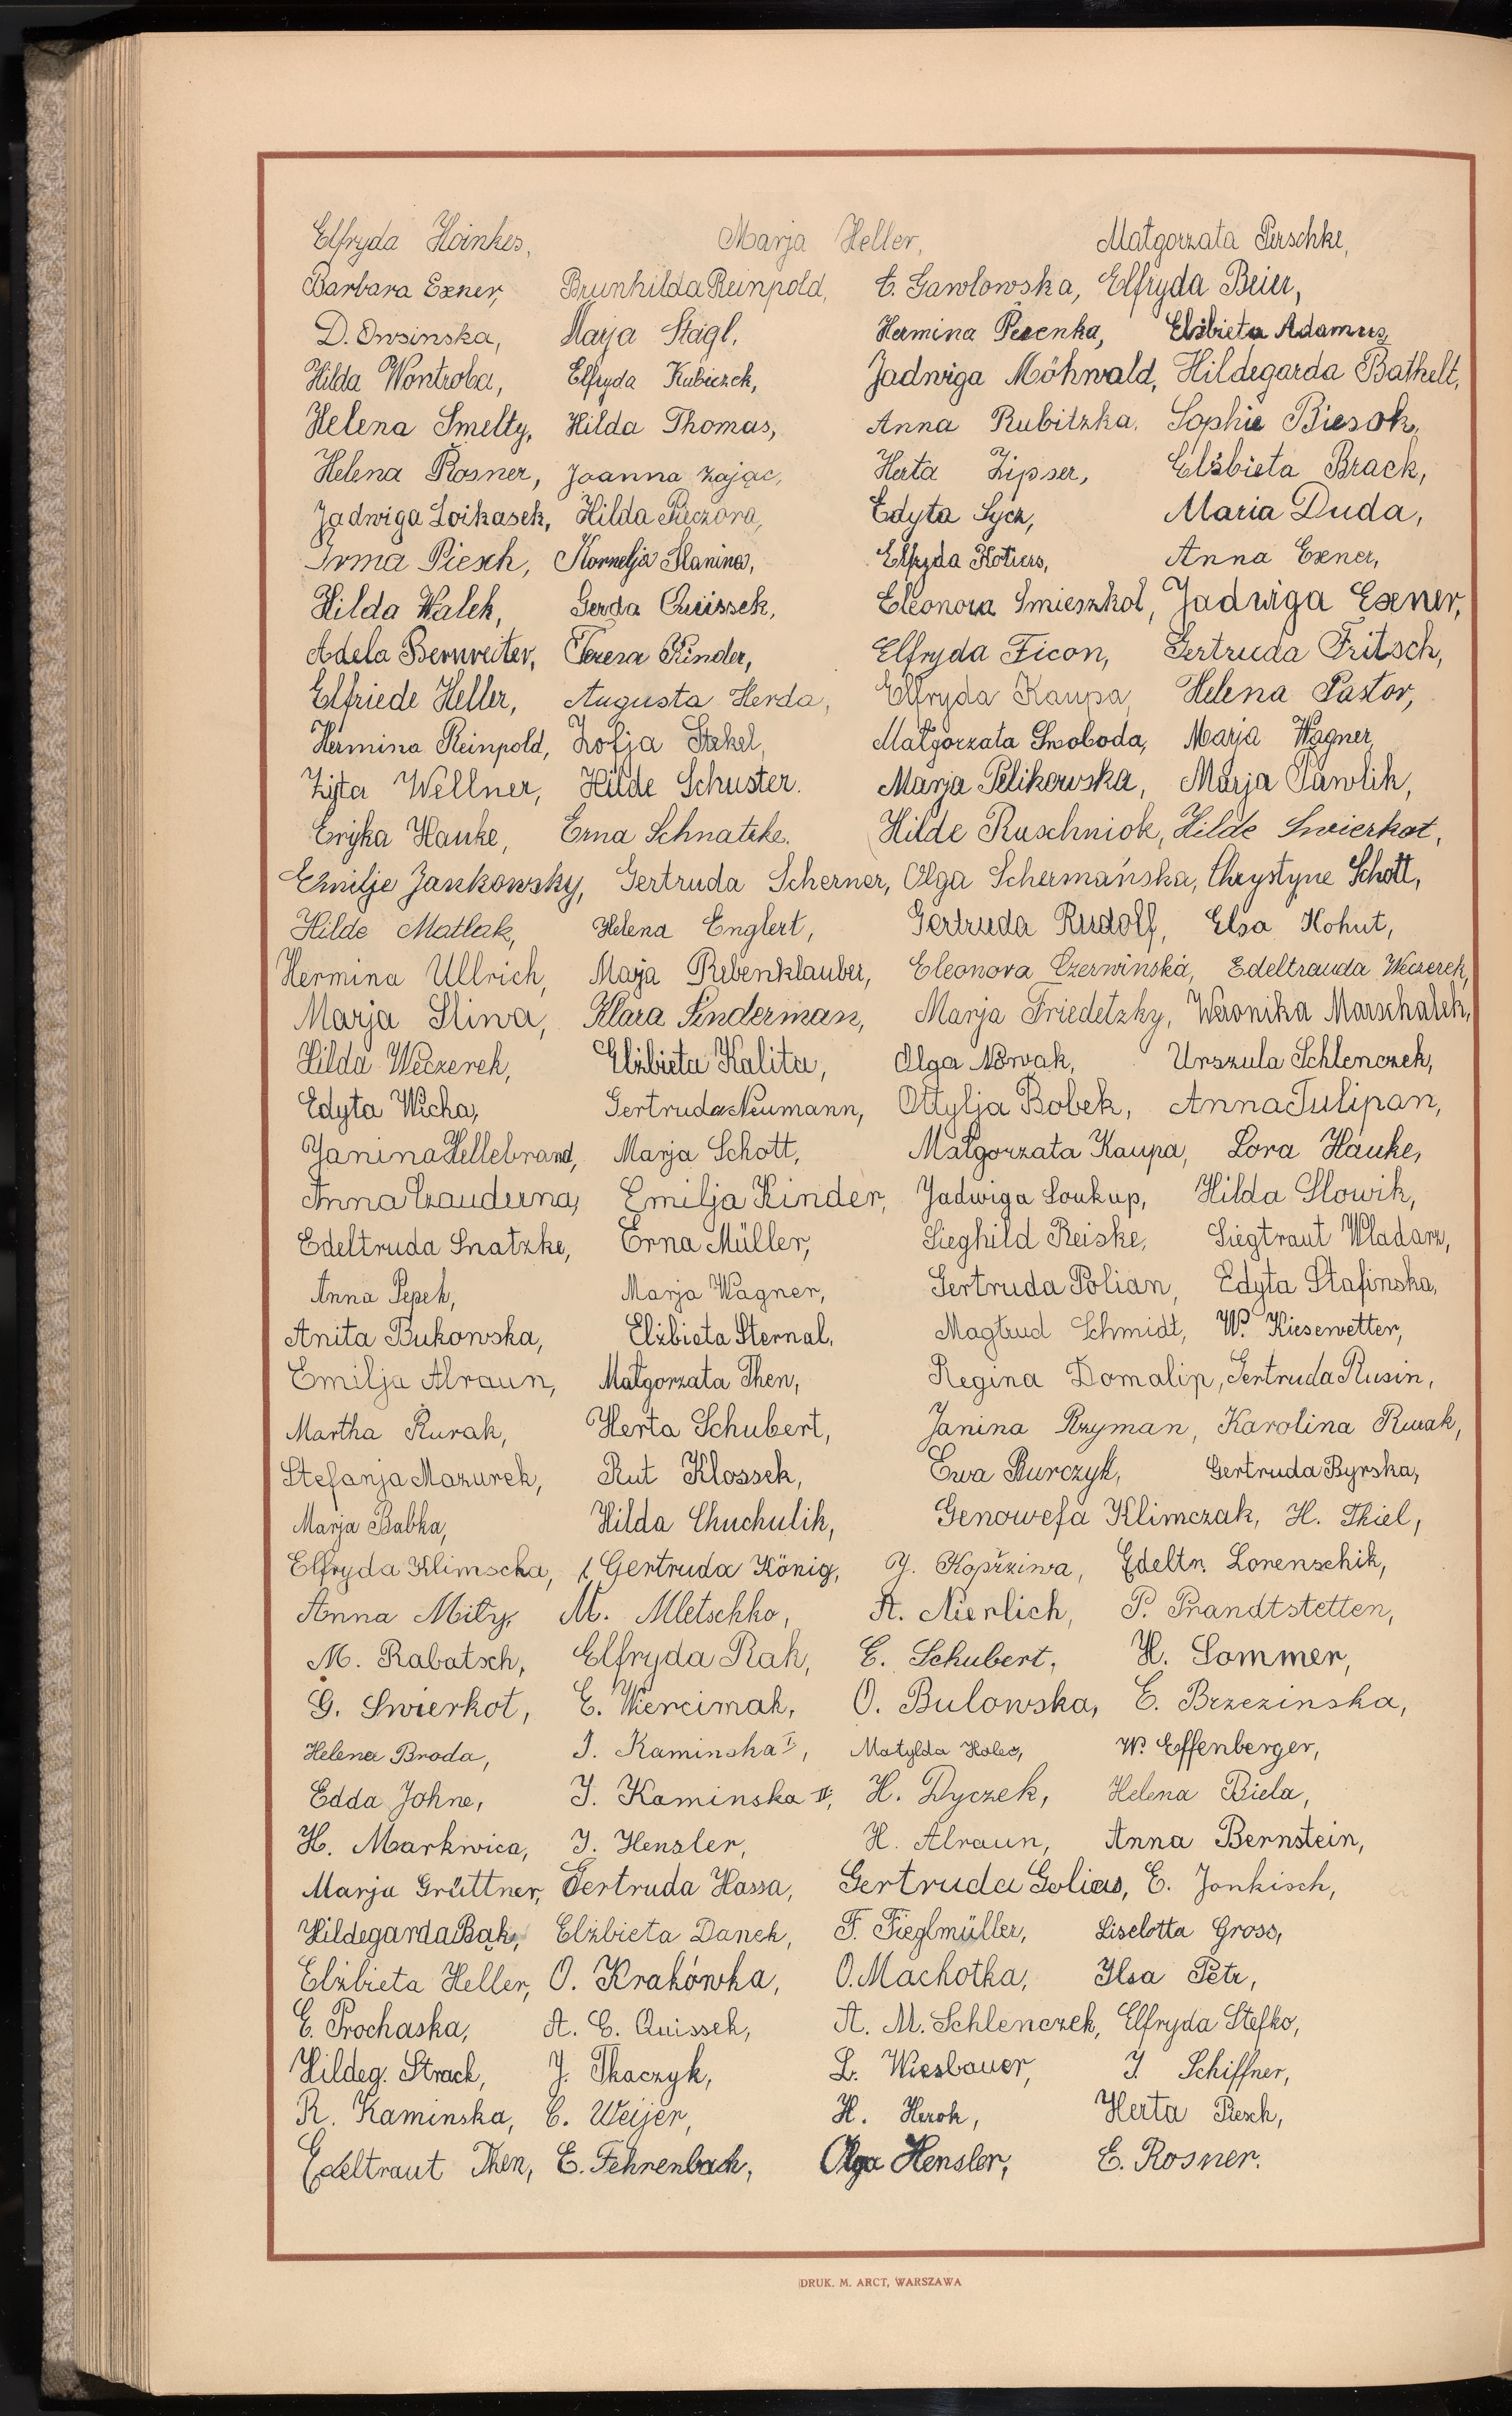 Elfryda Hoinkes, Marja Heller, Małgorzata Perschke,
Barbara Exner, Brunhilda Reinpold, E. Gawlowska, Elfryda Beier,
D. Owsinska, Marja Stagl, Hermina Pesenka, Elżbieta Adamus,
Hilda Wontroba, Elfryda Kubiczek, Jadwiga Möhwald, Hildegarda Bathelt,
Helena Smelty, Hilda Thomas, Anna Rubitzka, Sophie Biesok,
Helena Rosner, Joanna Zając, Herta Zipser, Elżbieta Brack,
Jadwiga Loikasek, Hilda Pieczora, Edyta Sycz, Maria Duda,
Irma Piesch, Kornelja Slanina, Elfryda Kotiers, Anna Exner,
Hilda Walek, Gerda Quissek, Eleonora Smieszkol, Jadwiga Exner,
Adela Bernreiter, Teresa Pinder, Elfryda Ficon, Gertruda Fritsch,
Elfriede Heller, Augusta Herda, Elfryda Kaupa, Helena Pastor,
Hermina Reinpold, Zofja Stekel, Małgorzata Swoboda, Marja Wagner,
Zyta Wellner, Hilde Schuster. Marja Pelikowska, Marja Pawlik,
Eryka Hauke, Erna Schnatzke. Hilde Ruschniok, Hilde Swierkot,
Emilje Jankowsky, Gertruda Scherner, Olga Schermańska, Chrystyne Schott,
Hilde Matlak, Helena Englert, Gertruda Rudolf, Elsa Kohut,
Hermina Ullrich, Marja Rebenklauber, Eleonora Czerwińska, Edeltrauda Weczerek,
Marja Sliwa, Klara Linderman, Marja Friedetzky, Weronika Marschalek,
Hilda Weczerek, Elżbieta Kalita, Olga Nowak, Urszula Schlenczek,
Edyta Wicha, Gertruda Neumann, Ottylja Bobek, Anna Tulipan,
Janina Hellebrand, Marja Schott, Małgorzata Kaupa, Lora Hauke,
Anna Czauderna, Emilja Kinder, Jadwiga Soukup, Hilda Slowik,
Edeltruda Snatzke, Erna Müller, Sieghild Reiske, Siegtraut Wladarz,
Anna Pepek, Marja Wagner, Gertruda Polian, Edyta Stafinska,
Anita Bukowska, Elżbieta Sternal, Magtrud Schmidt, W. Kiesewetter,
Emilja Alraun, Małgorzata Then, Regina Domalip, Gertruda Rusin,
Martha Żurak, Herta Schubert, Janina Rzyman, Karolina Rurak,
Stefanja Mazurek, Rut Klossek, Ewa Burczyk, Gertruda Byrska,
Marja Babka, Hilda Chuchulik, Genowefa Klimczak, H. Thiel,
Elfryda Klimscha, Gertruda König, J. Kopřziwa, Edeltr. Lorenschik,
Anna Mity, M. Mletschko, A. Nierlich, P. Prandtstetten,
M. Rabatsch, Elfryda Rak, E. Schubert, H. Sommer,
G. Swierkot, E. Wiercimak, O. Bulowska, E. Brzezinska,
Helena Broda, I. Kaminska I, Matylda Holec, W. Effenberger,
Edda Johne, I. Kaminska II, H. Dyczek, Helena Biela,
H. Markwica, I. Hensler, H. Alraun, Anna Bernstein,
Marja Grüttner, Gertruda Hassa, Gertruda Golias, E. Jonkisch,
Hildegarda Bąk, Elżbieta Danek, F. Fieglmüller, Liselotta Gross,
Elżbieta Heller, O. Krakówka, O. Machotka, Ilsa Petr,
E. Prochaska, A. E. Quissek, A. M. Schlenczek, Elfryda Stefko,
Hildeg. Strack, J. Tkaczyk, L. Wiesbauer, I. Schiffner,
R. Kaminska, E. Weijer, H. Herok, Herta Piesch,
Edeltraut Then, E. Fehrenbach, Olga Hensler, E. Rosner.
DRUK. M. ARCT, WARSZAWA